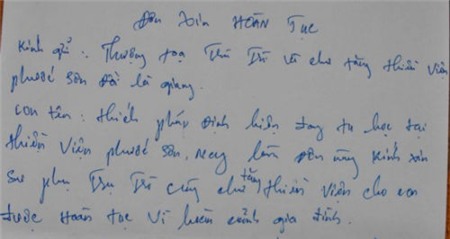 Đơn xin HOÀN Tục
Kính gửi: Thượng toạ Trụ Trì và chư tăng thiền viện
phước sơn
con tên: thích pháp định hiện đang tu học tại
thiền viện phước sơn, nay làm đơn này kính xin
sư phụ Trụ Trì cùng chư tăng thiền viện cho con
được hoàn tục vì hoàn cảnh gia đình.